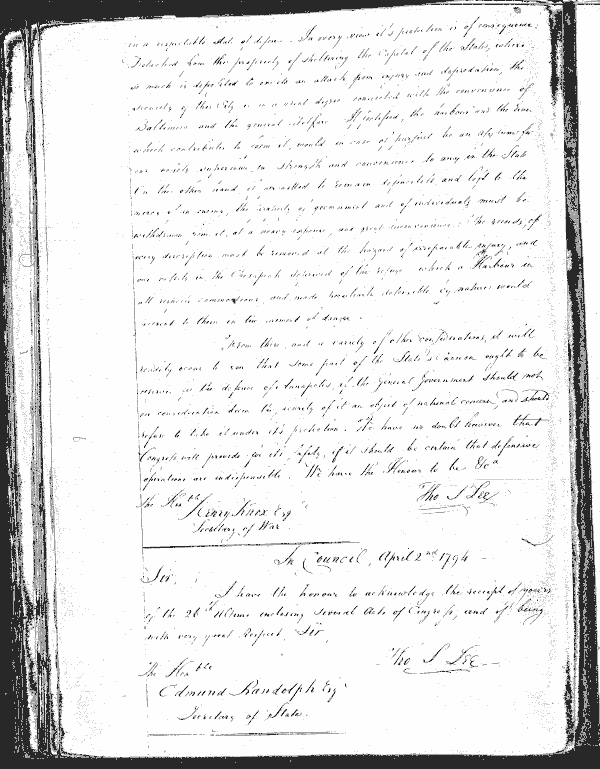 in a respectable state of defence. In every view it's protection is of consequence.
Detached from the propriety of sheltering the Capital of the State, where
so much is deposited to invite an attack from injury and depredation, the
security of this City is in a great degree connected with the convenience of
Baltimore and the general Welfare. If fortified, the harbour and the River
which contributes to form it, would in case of pursuit be an asylum for
our vessels superior in strength and convenience to any in the State
On the other hand if permitted to remain defenceless, and left to the
mercy of an enemy, the of government and of individuals must be
withdrawn from it, at a heavy expence, and great inconvenience. The records, of
every description must be removed at the hazard of irreparable injury, and
our vessels in the Chesapeak deprived of the refuge which a Harbour in
all respects commodious, and made defensible by nature would
present to them in the moment of danger.
From these, and a variety of other considerations, it will
readily occur to you that some part of the State's Cannon ought to be
reserved for the defence of Annapolis, if the General Government should not
on consideration deem the security of it an object of national concern, and should
refuse to take it under it's protection. We have no doubt however that
Congress will provide for it's safety, if it should be certain that defensive
operations are indispensible. We have the Honour to be &ca
The Honble
Tho S Lee
Henry Knox Esqr
Secretary of War
In Council, April 2nd 1794
Sir,
I have the honour to acknowledge the receipt of yours
of the 26th Ultimo enclosing several Acts of Congress, and of being
with very great Respect, Sir,
Tho S Lee
The Honble
Edmund Randolph Esqr
Secretary of State.